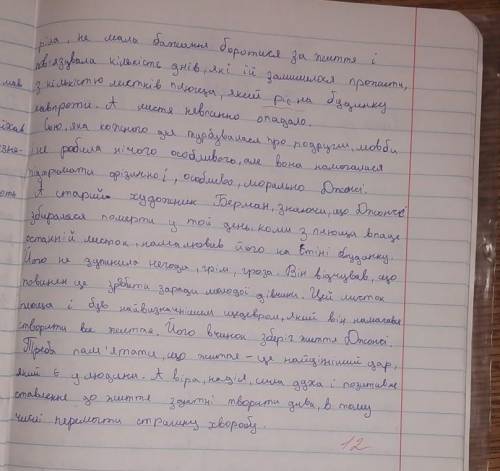 ріла, не мала бажання боротися за життя і
пов'язувала кількість днів, які їй залишилося прожити,
з кількістю листків плюща, який ріс на будинку
навпроти. А листя невпинно опадало.
Сью, яка кожного дня турбувалася про подругу, мовби
і не робила нічого особливого, але вона намагалася
підтримати фізично і, особливо, морально Джонсі.
А старий художник Берман, знаючи, що Джонсі
збиралася померти у той день, коли з плюща впаде
останній листок, намалював його на стіні будинку.
Його не зупинила негода, грім, гроза. Він відчував, що
повинен це зробити заради молодої дівчини. Цей листок
плюща і був найвизначнішим шедевром, який він намагався
створити все життя. Його вчинок зберіг життя Джонсі.
Треба пам'ятати, що життя - це найцінніший дар,
який є у людини. А віра, надія, сила духа і позитивне
ставлення до життя здатні творити дива, в тому
числі перемогти страшну хворобу.
12